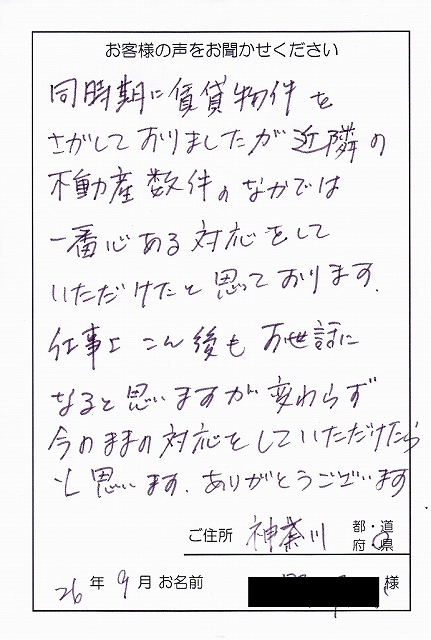 お客様の声をお聞かせください
同時期に賃貸物件を
さがしておりましたが近隣の
不動産数件のなかでは
一番心ある対応をして
いただけたと思っております.
仕事上こん後もお世話に
なると思いますが変わらず
今のままの対応をしていただけたら
と思います.ありがとうございます
ご住所 神奈川 都・道 府・県
26年9月 お名前 様